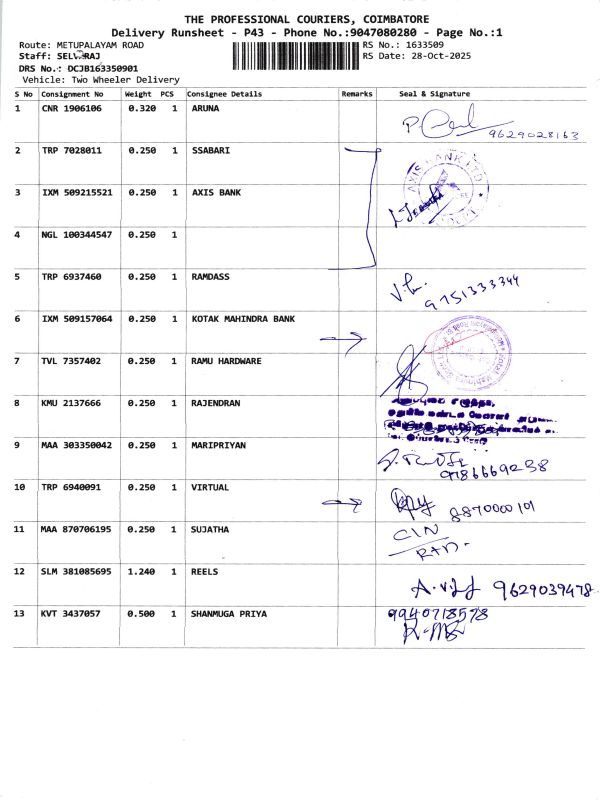 THE PROFESSIONAL COURIERS, COIMBATORE
Delivery Runsheet - P43 - Phone No.:9047080280 - Page No.:1
Route: METUPALAYAM ROAD RS No.: 1633509
Staff: SELVARAJ RS Date: 28-Oct-2025
DRS No.: DCJB163350901
Vehicle: Two Wheeler Delivery
S No Consignment No Weight PCS Consignee Details Remarks Seal & Signature
1 CNR 1906106 0.320 1 ARUNA
9629028163
2 TRP 7028011 0.250 1 SSABARI
AXIS BANK LTD
3 IXM 509215521 0.250 1 AXIS BANK
4 NGL 100344547 0.250 1
5 TRP 6937460 0.250 1 RAMDASS
9751333344
6 IXM 509157064 0.250 1 KOTAK MAHINDRA BANK
7 TVL 7357402 0.250 1 RAMU HARDWARE
8 KMU 2137666 0.250 1 RAJENDRAN
9 MAA 303350042 0.250 1 MARIPRIYAN
10 TRP 6940091 0.250 1 VIRTUAL
8870000101
11 MAA 870706195 0.250 1 SUJATHA
12 SLM 381085695 1.240 1 REELS
9629039478
13 KVT 3437057 0.500 1 SHANMUGA PRIYA
9940718578